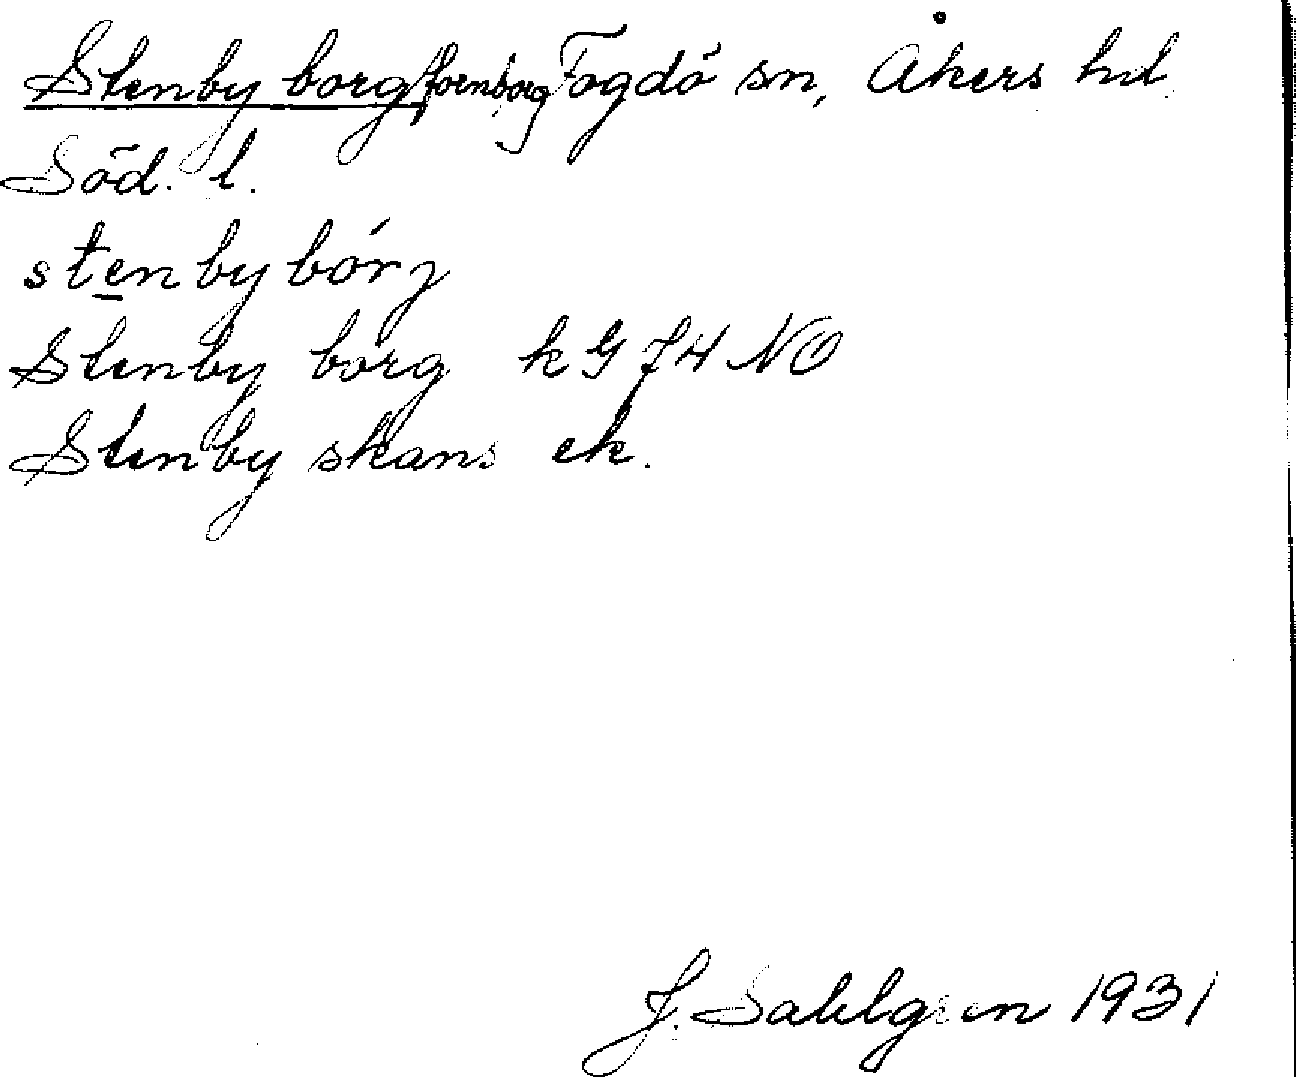 Stenby borg, fornborg Fogdö sn, Åkers hd
Söd. l.
stenby bórj
Stenby borg k G J4 NO
Stenby skans ek.
J. Sahlgren 1931